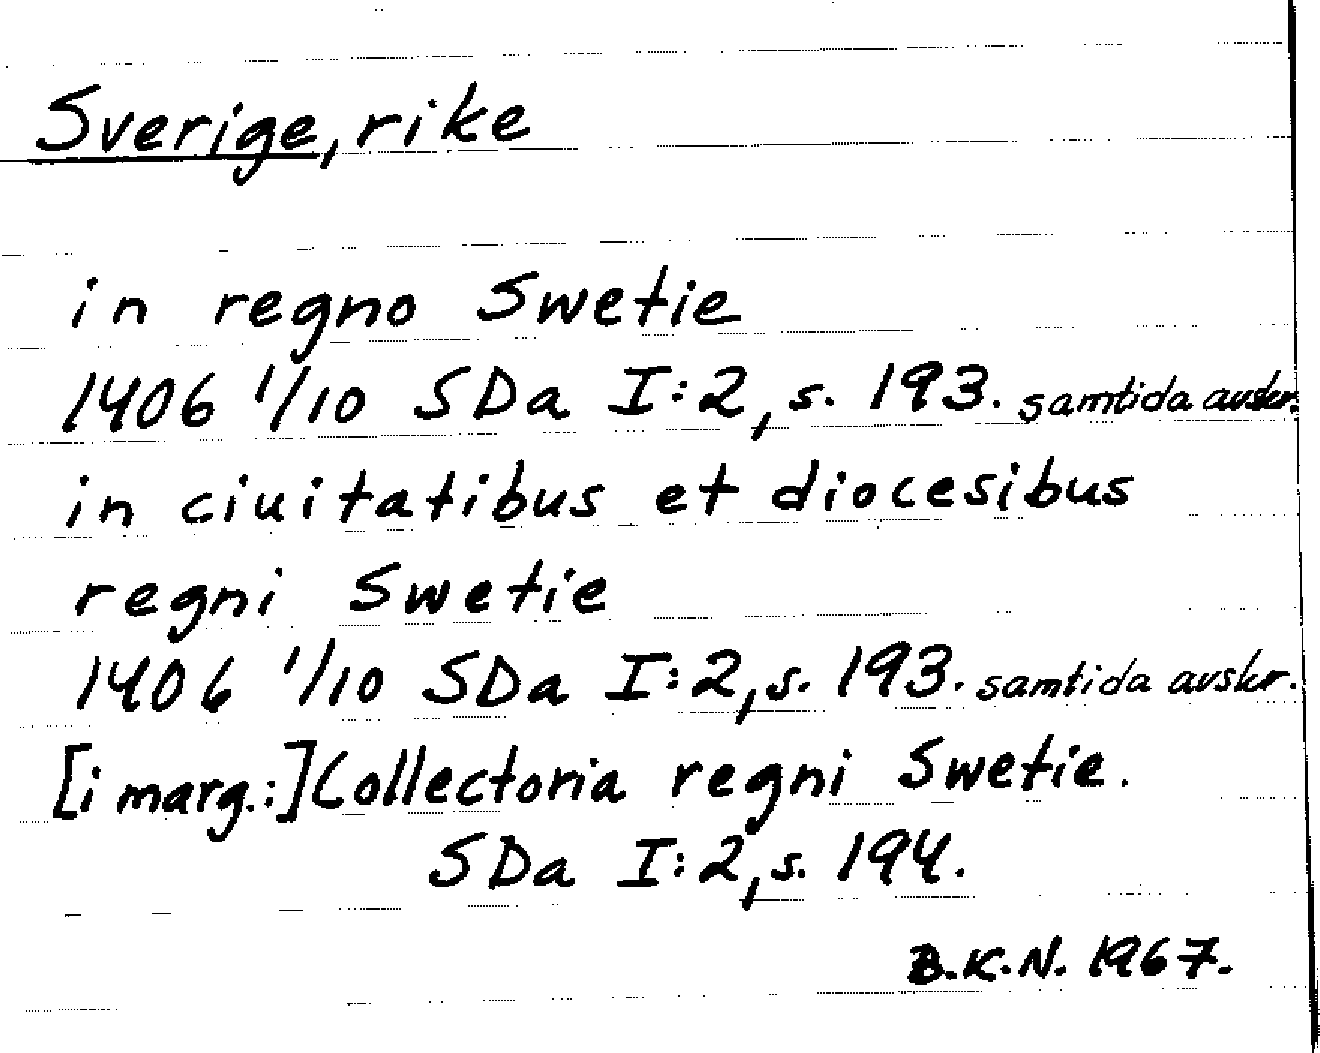 Sverige, rike
in regno Swetie
1406 1/10 SDa I:2, s. 193. samtida avskr.
in ciuitatibus et diocesibus
regni Swetie
1406 1/10 SDa I:2, s. 193. samtida avskr.
[i marg.:] Collectoria regni Swetie.
SDa I:2, s. 194.
B.K.N. 1967.